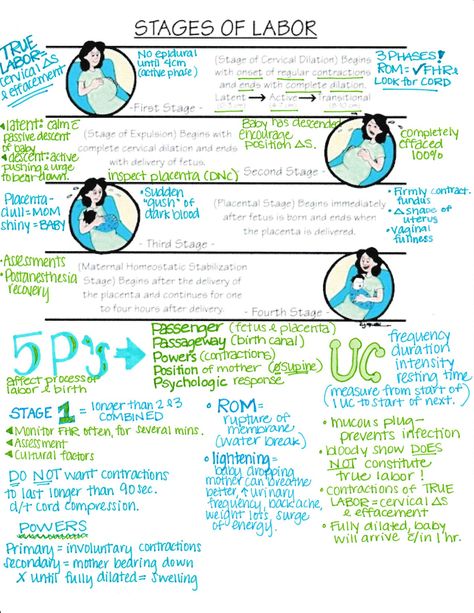 STAGES OF LABOR
TRUE
LABOR=
cervical Δs
& effacement
No epidural
until 4cm
(active phase)
(Stage of Cervical Dilation) Begins
with onset of regular contractions
and ends with complete dilation.
Latent → Active → Transitional
-First Stage -
3 PHASES!
ROM= ✓FHR &
Look for CORD
◂latent: calm &
passive descent
of baby
◂descent: active
pushing & urge
to bear down.
(Stage of Expulsion) Begins with
complete cervical dilation and ends
with delivery of fetus.
inspect placenta (DNC)
Baby has descended
encourage
position Δs.
Second Stage -
completely
effaced
100%
Placenta-
dull=MOM
shiny=BABY
•Sudden
"gush" of
dark blood
(Placental Stage) Begins immediately
after fetus is born and ends
when the placenta is delivered.
- Third Stage -
•Firmly contract.
fundus
•Δ shape of
uterus
•vaginal
fullness
•Assessments
•Postanesthesia
recovery
(Maternal Homeostatic Stabilization
Stage) Begins after the delivery of
the placenta and continues for one
to four hours after delivery.
- Fourth Stage -
5 P's →
affect process of
labor & birth
Passenger (fetus & placenta)
Passageway (birth canal)
Powers (contractions)
Position of mother (∅supine)
Psychologic response
UC
frequency
duration
intensity
resting time
(measure from start of
1 UC to start of next.)
STAGE 1 = longer than 2 & 3
COMBINED
◂Monitor FHR often, for several mins.
◂Assessment
◂Cultural factors
DO NOT want contractions
to last longer than 90 sec.
d/t cord compression.
POWERS
Primary = involuntary contractions
secondary = mother bearing down
X until fully dilated = swelling
•ROM=
rupture of
membrane
(water break)
•lightening=
baby dropping
mother can breathe
better, ↑ urinary
frequency, backache,
weight loss, surge
of energy.
•mucous plug-
prevents infection
•bloody show DOES
NOT constitute
true labor!
•contractions of TRUE
LABOR=cervical Δs
& effacement
•Fully dilated, baby
will arrive c/in 1 hr.